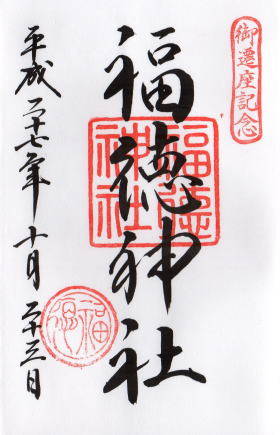 御遷座記念
福徳神社
福徳神社
平成二十七年十月二十三日
福徳